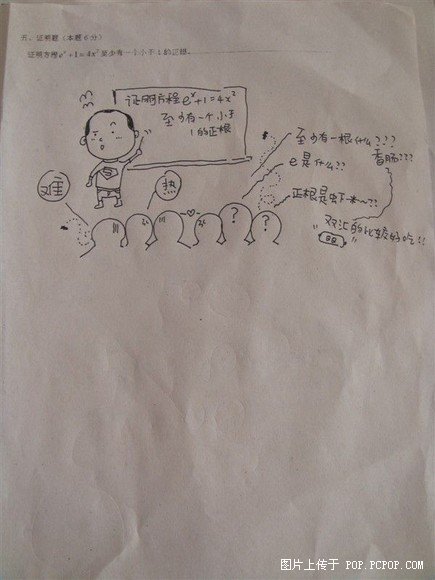 五、证明题（本题6分）
证明方程eˣ+1=4x²至少有一个小于1的正根.
证明方程eˣ+1=4x²
至少有一个小于
1的正根
至少有一根什么???
香肠???
e是什么??
正根是
双汇的比较好吃!!
难
热
?
?
图片上传于 POP.PCPOP.COM